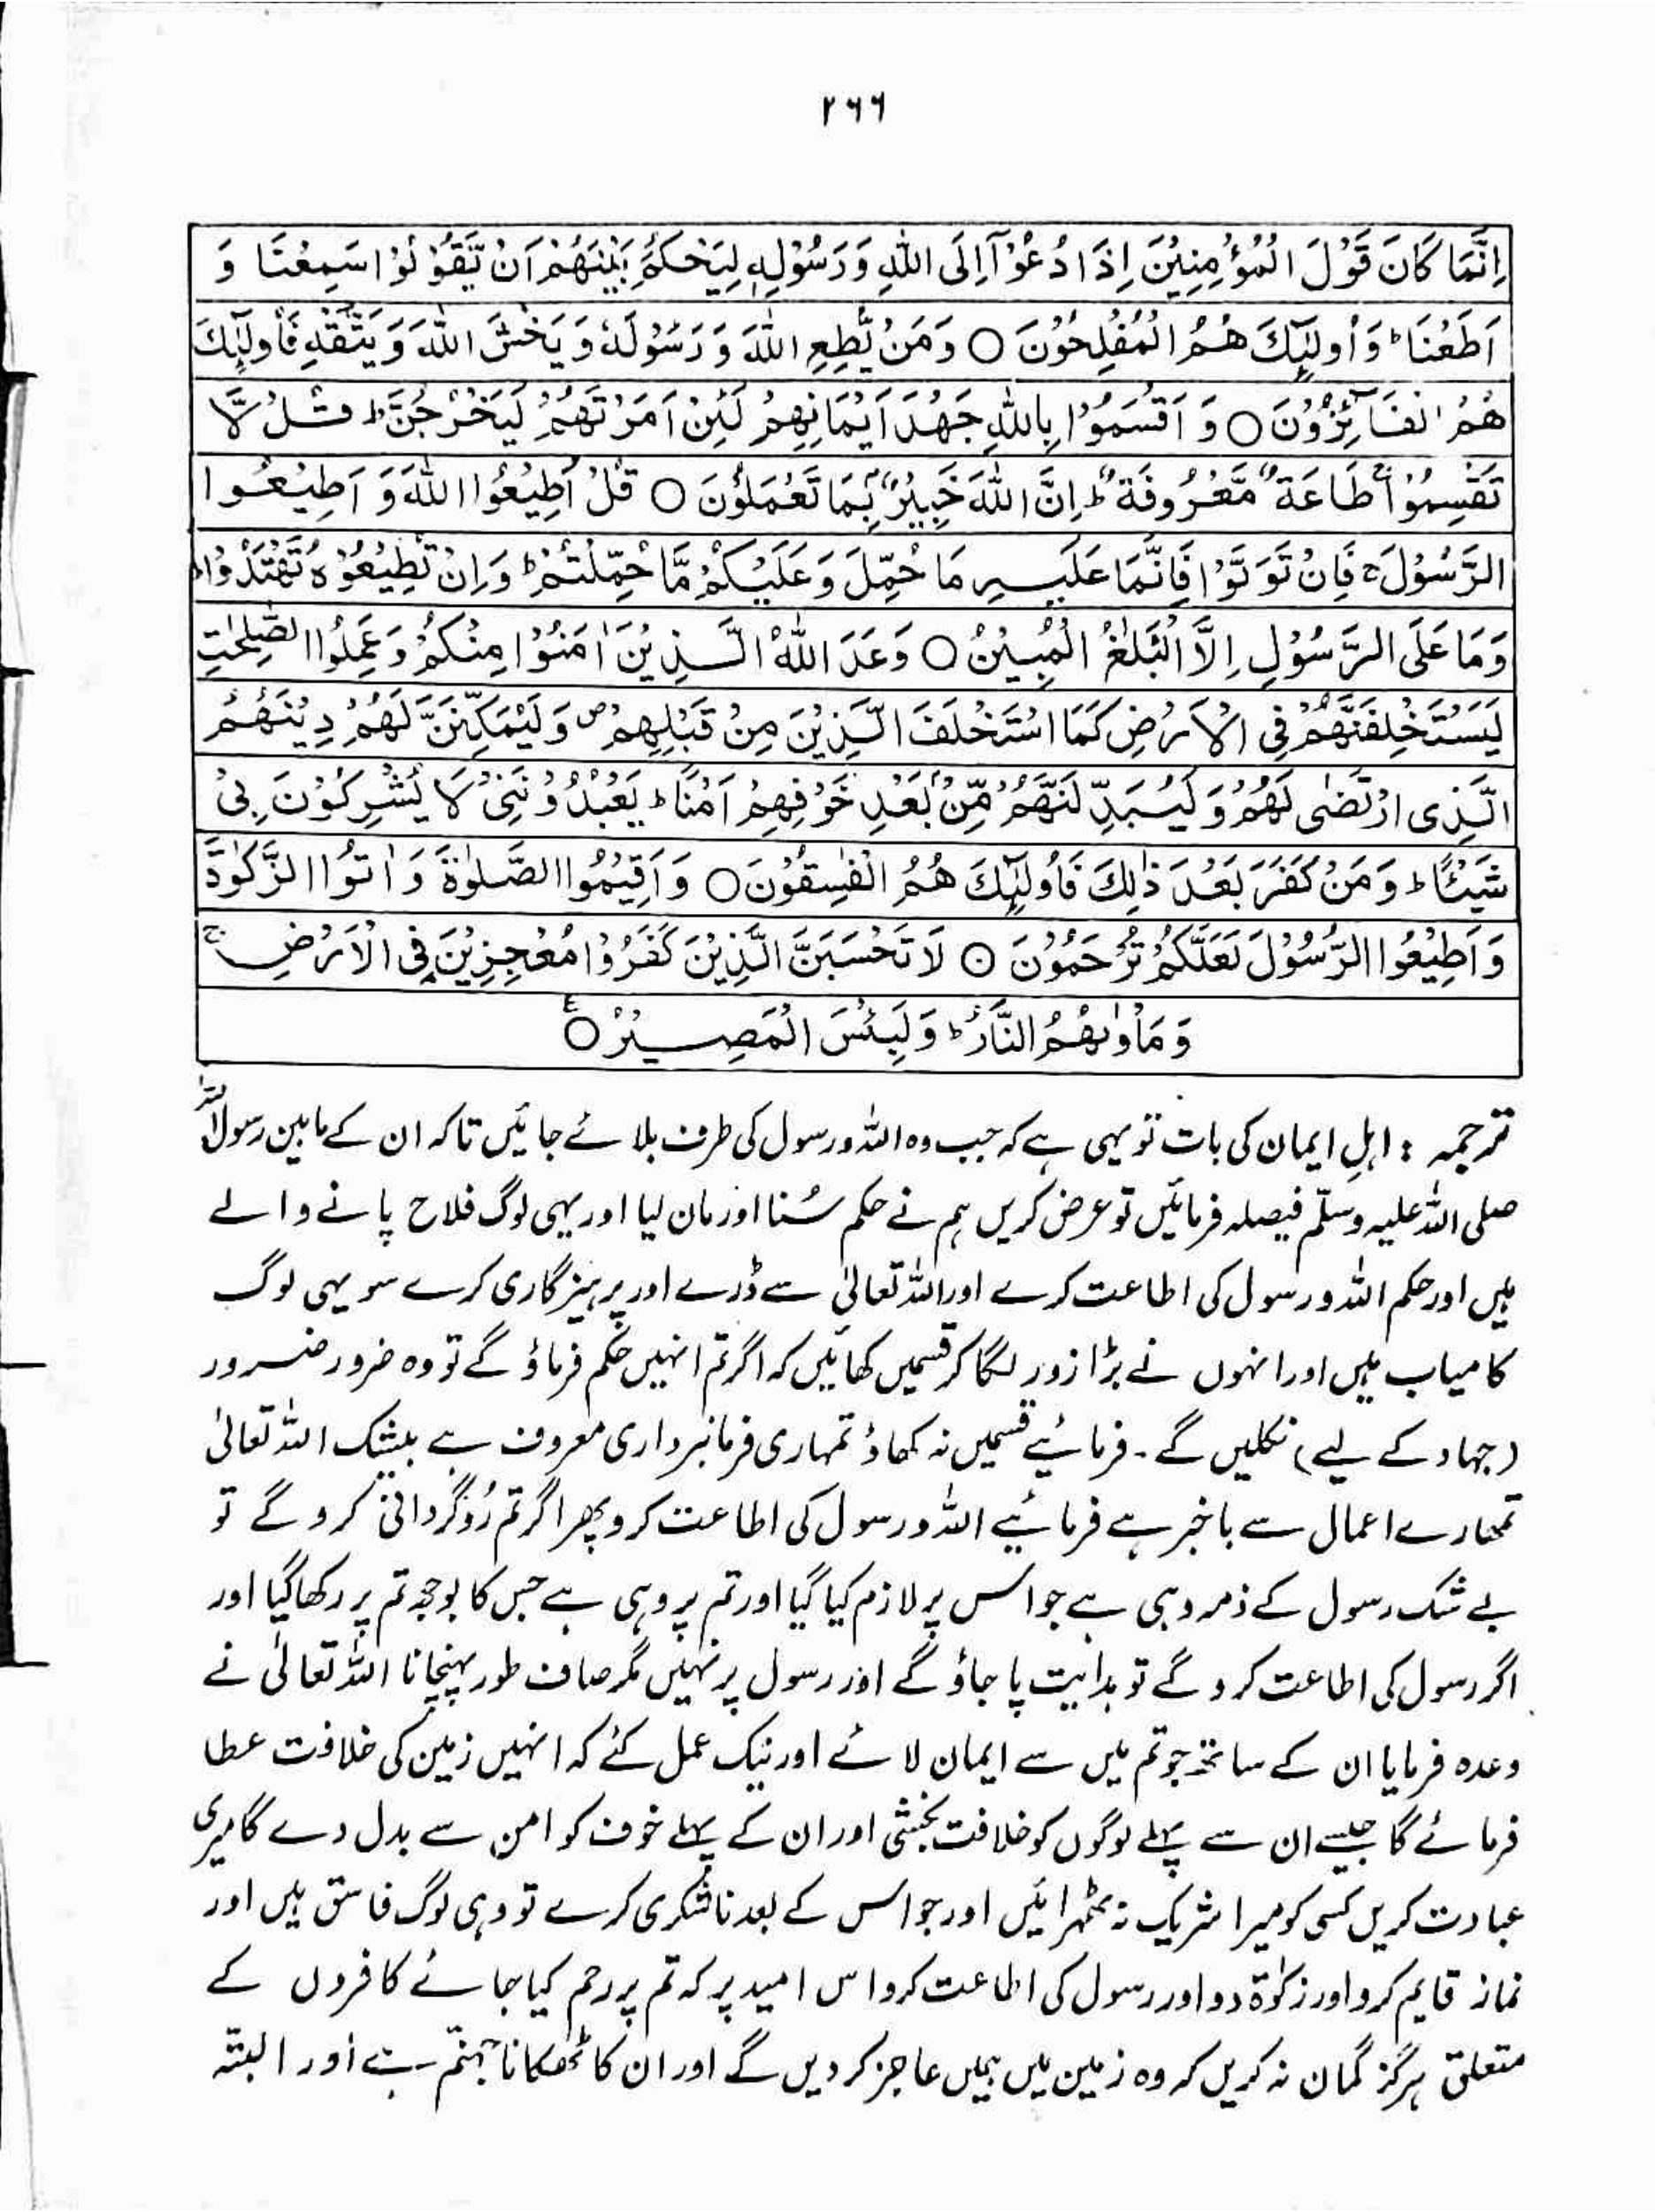 ۲۶۶
اِنَّمَا كَانَ قَوْلَ الْمُؤْمِنِيْنَ اِذَا دُعُوْٓا اِلَى اللّٰهِ وَرَسُوْلِهٖ لِيَحْكُمَ بَيْنَهُمْ اَنْ يَّقُوْلُوْا سَمِعْنَا وَ
اَطَعْنَا ؕ وَاُولٰٓئِكَ هُمُ الْمُفْلِحُوْنَ ○ وَمَنْ يُّطِعِ اللّٰهَ وَرَسُوْلَهٗ وَيَخْشَ اللّٰهَ وَيَتَّقْهِ فَاُولٰٓئِكَ
هُمُ الْفَآئِزُوْنَ ○ وَ اَقْسَمُوْا بِاللّٰهِ جَهْدَ اَيْمَانِهِمْ لَئِنْ اَمَرْتَهُمْ لَيَخْرُجُنَّ ؕ قُلْ لَّا
تُقْسِمُوْا ۚ طَاعَةٌ مَّعْرُوْفَةٌ ؕ اِنَّ اللّٰهَ خَبِيْرٌۢ بِمَا تَعْمَلُوْنَ ○ قُلْ اَطِيْعُوا اللّٰهَ وَ اَطِيْعُوا
الرَّسُوْلَ ۚ فَاِنْ تَوَلَّوْا فَاِنَّمَا عَلَيْهِ مَا حُمِّلَ وَعَلَيْكُمْ مَّا حُمِّلْتُمْ ؕ وَاِنْ تُطِيْعُوْهُ تَهْتَدُوْا ؕ
وَمَا عَلَى الرَّسُوْلِ اِلَّا الْبَلٰغُ الْمُبِيْنُ ○ وَعَدَ اللّٰهُ الَّذِيْنَ اٰمَنُوْا مِنْكُمْ وَعَمِلُوا الصّٰلِحٰتِ
لَيَسْتَخْلِفَنَّهُمْ فِى الْاَرْضِ كَمَا اسْتَخْلَفَ الَّذِيْنَ مِنْ قَبْلِهِمْ ۪ وَلَيُمَكِّنَنَّ لَهُمْ دِيْنَهُمُ
الَّذِى ارْتَضٰى لَهُمْ وَلَيُبَدِّلَنَّهُمْ مِّنْۢ بَعْدِ خَوْفِهِمْ اَمْنًا ؕ يَعْبُدُوْنَنِىْ لَا يُشْرِكُوْنَ بِىْ
شَيْئًا ؕ وَمَنْ كَفَرَ بَعْدَ ذٰلِكَ فَاُولٰٓئِكَ هُمُ الْفٰسِقُوْنَ ○ وَاَقِيْمُوا الصَّلٰوةَ وَاٰتُوا الزَّكٰوةَ
وَاَطِيْعُوا الرَّسُوْلَ لَعَلَّكُمْ تُرْحَمُوْنَ ○ لَا تَحْسَبَنَّ الَّذِيْنَ كَفَرُوْا مُعْجِزِيْنَ فِى الْاَرْضِ ۚ
وَمَاْوٰىهُمُ النَّارُ ؕ وَلَبِئْسَ الْمَصِيْرُ ○ ع
ترجمہ : اہلِ ایمان کی بات تو یہی ہے کہ جب وہ اللہ و رسول کی طرف بلائے جائیں تاکہ ان کے مابین رسول اللہ
صلی اللہ علیہ وسلّم فیصلہ فرمائیں تو عرض کریں ہم نے حکم سُنا اور مان لیا اور یہی لوگ فلاح پانے والے
ہیں اور حکم اللہ و رسول کی اطاعت کرے اور اللہ تعالیٰ سے ڈرے اور پرہیزگاری کرے سو یہی لوگ
کامیاب ہیں اور انہوں نے بڑا زور لگا کر قسمیں کھائیں کہ اگر تم انہیں حکم فرماؤ گے تو وہ ضرور ضرور
(جہاد کے لیے) نکلیں گے ۔ فرمائیے قسمیں نہ کھاؤ تمہاری فرمانبرداری معروف ہے بیشک اللہ تعالیٰ
تمھارے اعمال سے باخبر ہے فرمائیے اللہ و رسول کی اطاعت کرو پھر اگر تم رُوگردانی کرو گے تو
بے شک رسول کے ذمہ وہی ہے جو اس پر لازم کیا گیا اور تم پر وہی ہے جس کا بوجھ تم پر رکھا گیا اور
اگر رسول کی اطاعت کرو گے تو ہدایت پا جاؤ گے اور رسول پر نہیں مگر صاف طور پہنچانا اللہ تعالیٰ نے
وعدہ فرمایا ان کے ساتھ جو تم میں سے ایمان لائے اور نیک عمل کئے کہ انہیں زمین کی خلافت عطا
فرمائے گا جیسے ان سے پہلے لوگوں کو خلافت بخشی اور ان کے پہلے خوف کو امن سے بدل دے گا میری
عبادت کریں کسی کو میرا شریک نہ ٹھہرائیں اور جو اس کے بعد ناشکری کرے تو وہی لوگ فاسق ہیں اور
نماز قایم کرو اور زکوٰۃ دو اور رسول کی اطاعت کرو اس امید پر کہ تم پر رحم کیا جائے کافروں کے
متعلق ہرگز گمان نہ کریں کہ وہ زمین میں ہمیں عاجز کردیں گے اور ان کا ٹھکانا جہنّم ہے اور البتہ